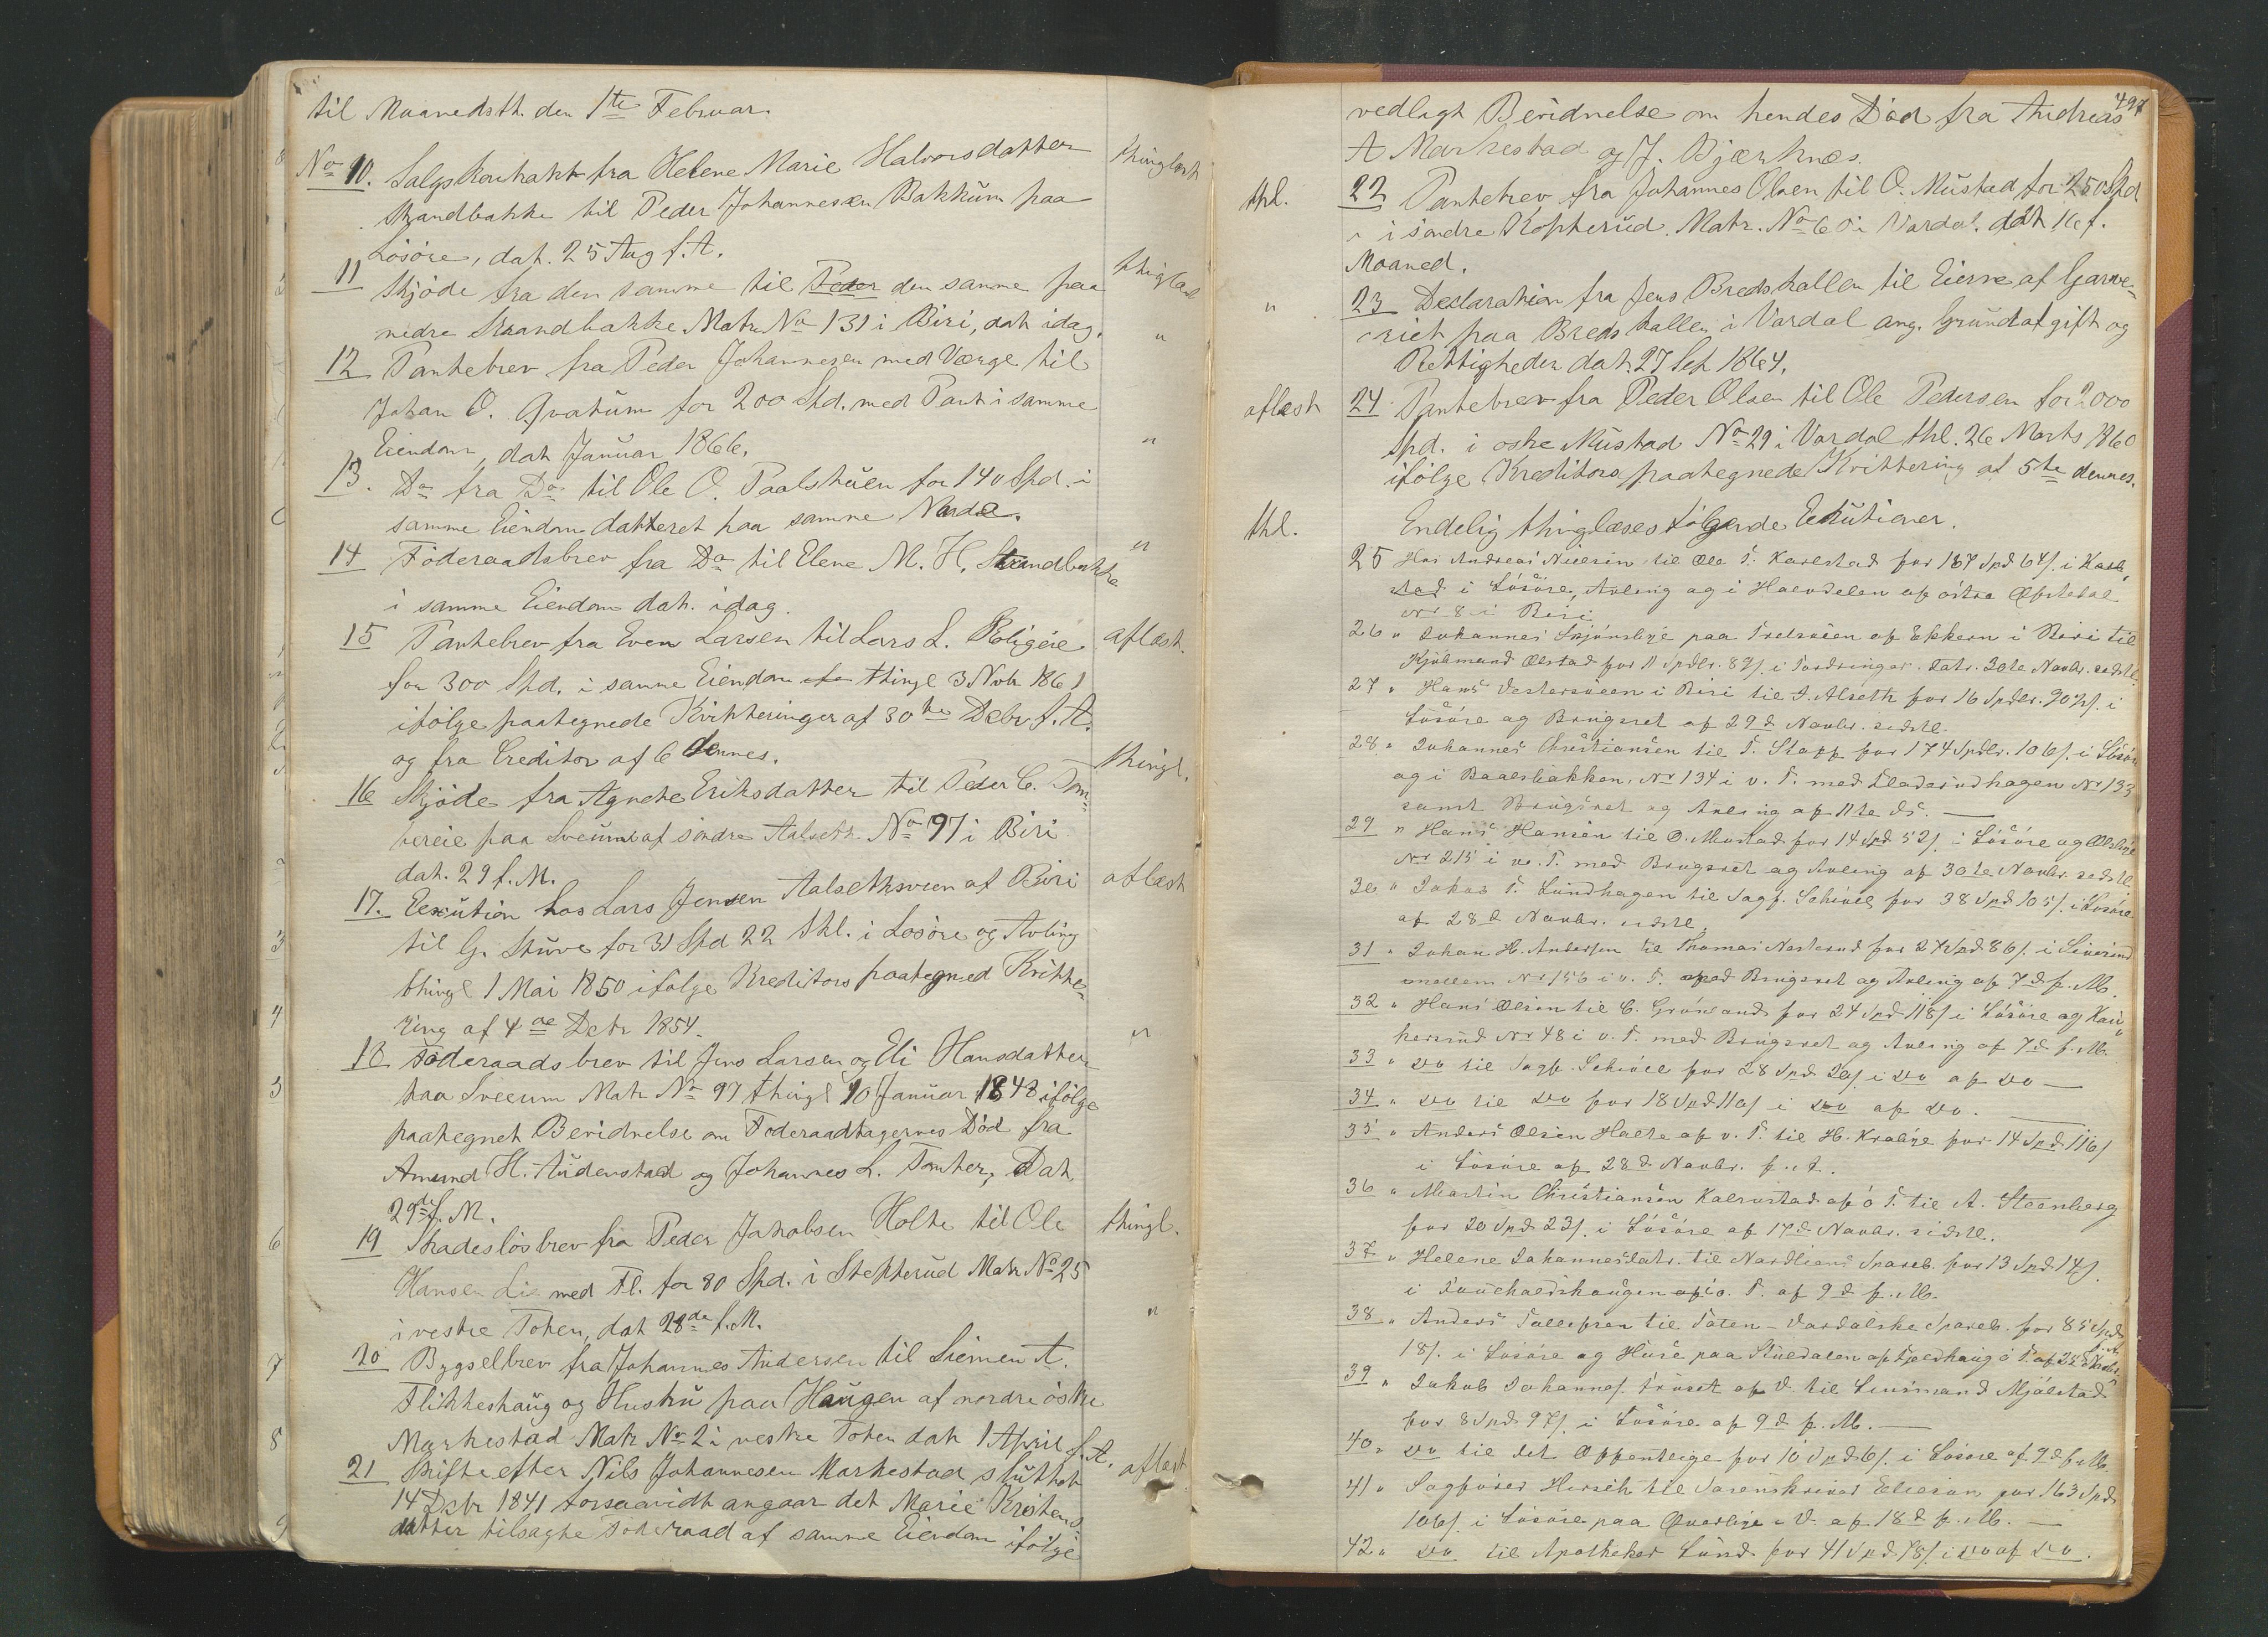 til Maanedsth. den 1te Februar
No 10. Salgskontrakt fra Helene Marie Halvorsdatter thinglæst
Strandbakke til Peder Johannesen Bakkum paa
Lösöre, dat. 25 Aug f. A.
11 Skjöde fra den samme til Peder den samme paa thinglæst
nedre Strandbakke Matr No 131 i Biri, dat idag. "
12 Pantebrev fra Peder Johannesen med Værge til
Johan O. Qvatum for 200 Spd. med Pant i samme
Eiendom, dat Januar 1866. "
13. Do fra Do til Ole O. Paalstuen for 140 Spd. i
samme Eiendom datteret paa samme
14 Föderaadsbrev fra Do til Elene M. H. Strandbakke "
i samme Eiendom dat. idag.
15 Pantebrev fra Even Larsen til Lars L. aflæst.
for 300 Spd. i samme Eiendom thingl 3 Nvbr 1861
ifölge paategnede Kvitteringer af 30te Debr f. A.
og fra Creditor af 6 dennes.
16 Skjöde fra Agnete Eriksdatter til Peder C. Tom= thingl.
tereie paa Sveum af söndre Aalseth No 97 i Biri
dat. 29 f. M.
17. Execution hos Lars Jensen Aalsethsveen af Biri aflæst
til G. Stuve for 31 Spd 22 skl. i Lösöre og Avling
thingl 1 Mai 1850 ifölge Kreditors paategned Kvitte=
ring af 4de Debr 1854.
18 Föderaadsbrev til Jens Larsen og Eli Hansdatter "
paa Sveum Matr No 97 thingl 10 Januar 1848 ifölge
paategnet Bevidnelse om Föderaadtagernes Död fra
Amund H. Audenstad og Johannes L. Tomter, Dat
29de f. M.
19 Skadeslösbrev fra Peder Jakobsen Holte til Ole thingl.
Hansen Lie med Fl. for 80 Spd. i Stekterud Matr No 25
i vestre Toten, dat 28de f. M. "
20 Bygselbrev fra Johannes Andersen til Siemen A.
Flikkeshaug og Hustru paa Haugen af nordre östre
Markestad Matr No 2 i vestre Toten dat 1 April f. A.
21 Skifte efter Nils Johannesen Markestad sluttet aflæst
14 Debr 1841 forsaavidt angaar det Marie Kristens=
datter tilsagte Föderaad af samme Eiendom ifölge
497
vedlagt Bevidnelse om hendes Död fra Andreas
A Markestad og J. Bjærknæs.
thl. 22 Pantebrev fra Johannes Olsen til O. Mustad for 250 Spd
i söndre Kopperud. Matr. No 60 i Vardal. dat 16 f.
Maaned.
" 23 Declaration fra Jens Bredskallen til Eierne af Garve=
riet paa Bredskallen i Vardal ang. Grundafgift og
Rettigheder dat 27 Sep 1864.
aflæst 24 Pantebrev fra Peder Olsen til Ole Pedersen for 2000
Spd. i östre Mustad No 29 i Vardal thl. 26 Marts 1860
ifölge Kreditors paategnede Kvittering af 5te dennes.
thl. Endelig thinglæses fölgende Exekutioner.
25 Hos Andreas Nielsen til Ole T. Karlstad for 187 Spd 64/ i Karl=
stad i Lösöre, Avling og i Halvdelen af östre Opstedal
No 8 i Biri
26 " Johannes paa af Ekkern i Biri til
Olstad for 11 Spdlr. 82/ i Fordringer. datr. 30te Novbr. sidstl.
27 " Hans Vestersveen i Biri til A. Alseth for 16 Spdlr. 90½/ i
Lösöre og Brugsret af 29d Novbr. sidstl.
28 " Johannes Christiansen til T. Stapp for 174 Spdlr. 106/ i Lösöre
og i Baalsbakken, No 134 i v. T. med Fladsrudhagen No 133
samt Brugsret og Avling af 11te ds. —
29 " Hans Hansen til O. Mustad for 14 Spd 52/ i Lösöre og
No 215 i v. T. med Brugsret og Avling af 30te Novbr. sidstl.
30 " Jakob T. Lundhagen til Sagf. Schiöll for 38 Spd 105/ i Lösöre
af 28d Novbr. sidstl.
31 " Johan H. Andersen til Thomas Nesterud for 27 Spd 86/ i
mellem No 156 i v. T. med Brugsret og Avling af 7d f. M.
32 " Hans Olsen til C. Grönland for 24 Spd 118/ i Lösöre og
No 48 i v. T. med Brugsret og Avling af 7d f. M.
33 " do til Sagf. Schiöll for 28 Spd 20/ i do af do —
34 " do til do for 18 Spd 110/ i do af do. —
35 " Anders Olsen Holte af v. T. til H. Kralbye for 14 Spd. 116/
i Lösöre af 28d Novbr. f. A.
36 " Martin Christiansen Kalrustad af ö T. til A. Steenberg
for 20 Spd. 23/. i Lösöre af 17d Novbr. sidstl.
37 " Helene Johannesdatr. til Nordlien Spareb. for 13 Spd 14/.
i af ö. T. af 9d f. M.
38 " Anders Tollefsen til Toten - Vardalske Spareb. for 85 Spd
18/. i Lösöre og Huse paa Stuedalen af ö T. af 22d Novbr. f. A.
39 " Jakob Johannes. af V. til Lensmand Mjölstad
for 8 Spd 97/. i Lösöre af 9d f. M. —
40 " do til det Offentlige for 10 Spd 6/. i Lösöre af 9d f. M.
41 " Sagförer Hirsch til Sorenskriver for 163 Spd
106/. i Lösöre paa i V. af 18d f. M. —
42 " do til Apotheker Lund for 41 Spd 78/. i do af do.